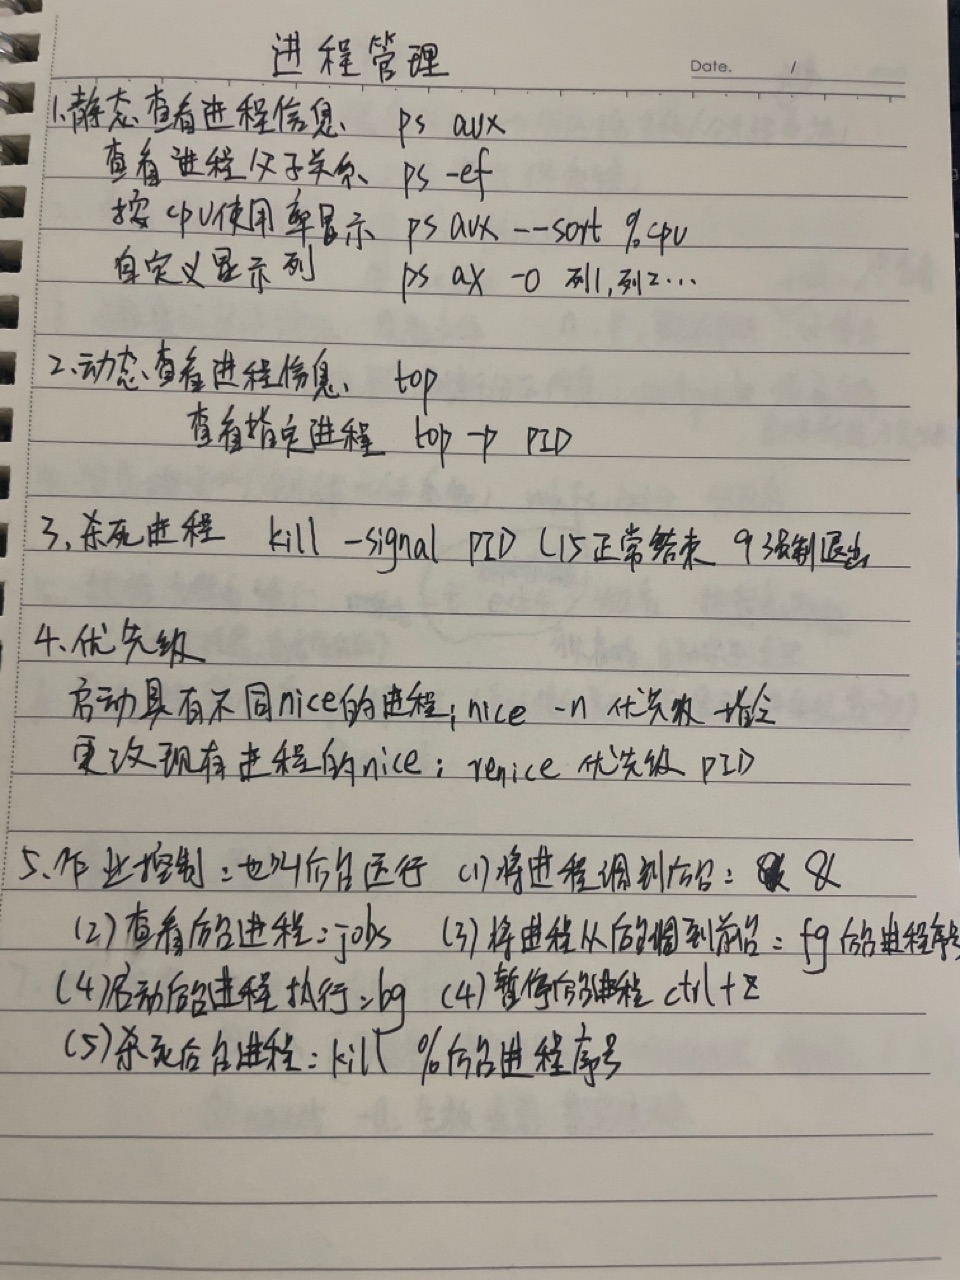 进程管理
Date. /
1.静态查看进程信息、 ps aux
查看进程父子关系、 ps -ef
按cpu使用率显示 ps aux --sort %cpu
自定义显示列 ps ax -o 列1,列2...
2.动态查看进程信息、 top
查看指定进程 top -p PID
3.杀死进程 kill -signal PID (15正常结束 9强制退出
4.优先级
启动具有不同nice的进程; nice -n 优先级 指令
更改现有进程的nice: renice 优先级 PID
5.作业控制:也叫后台运行 (1)将进程调到后台: &
(2)查看后台进程:jobs (3)将进程从后台调到前台: fg 后台进程序号
(4)启动后台进程执行:bg (4)暂停后台进程 ctrl+z
(5)杀死后台进程: kill %后台进程序号